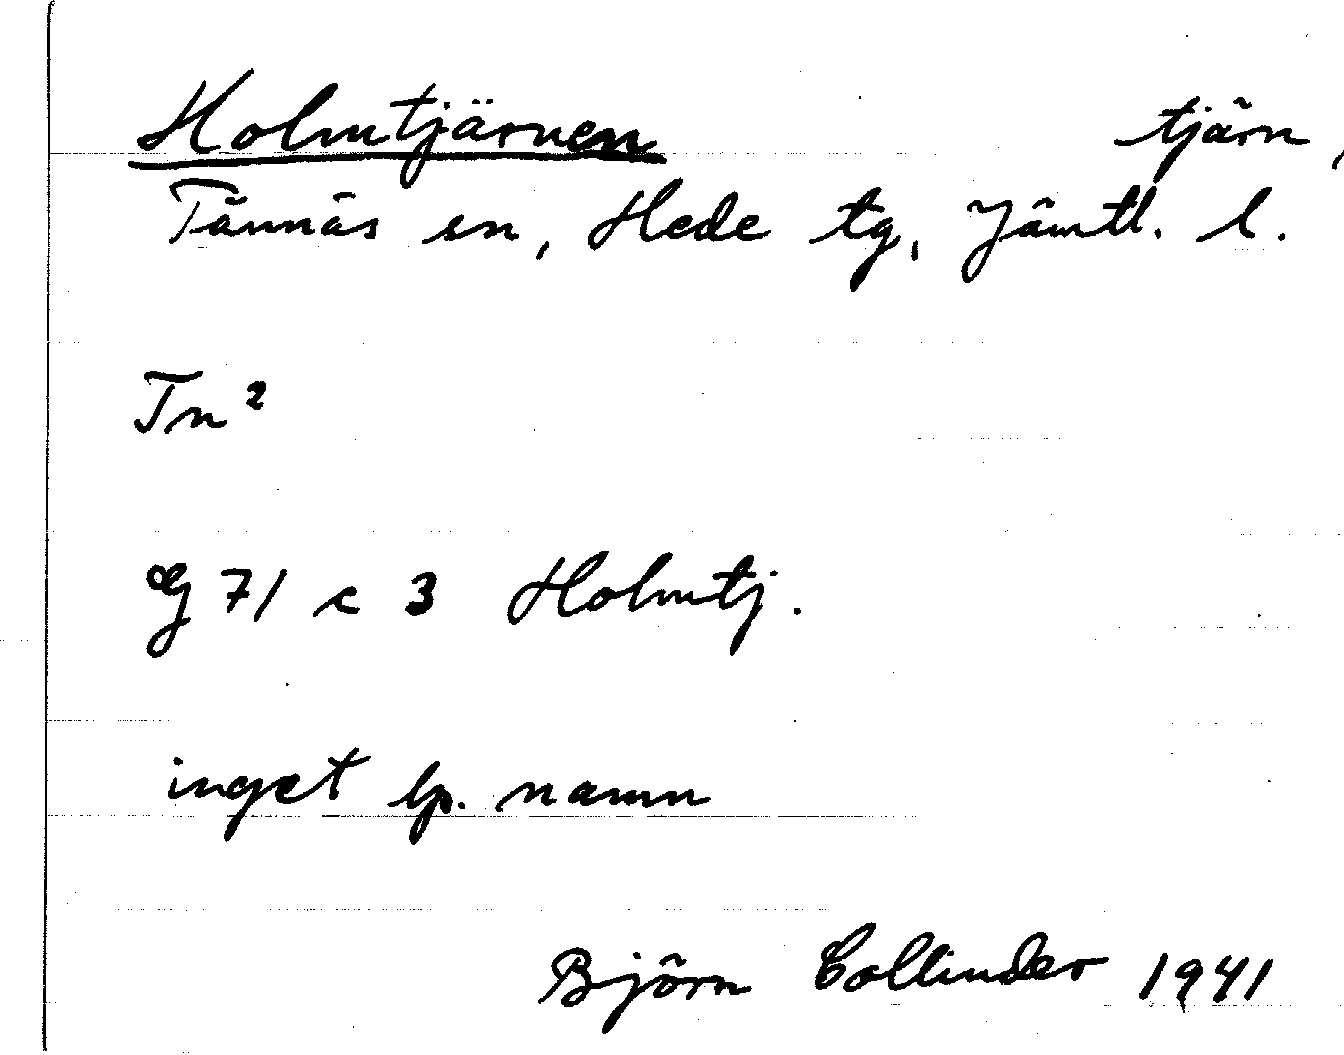 Holmtjärnen tjärn
Tännäs sn, Hede tg, Jämtl. l.
Tn²
G 71 c 3 Holmtj.
inget lp. namn
Björn Collinder 1941